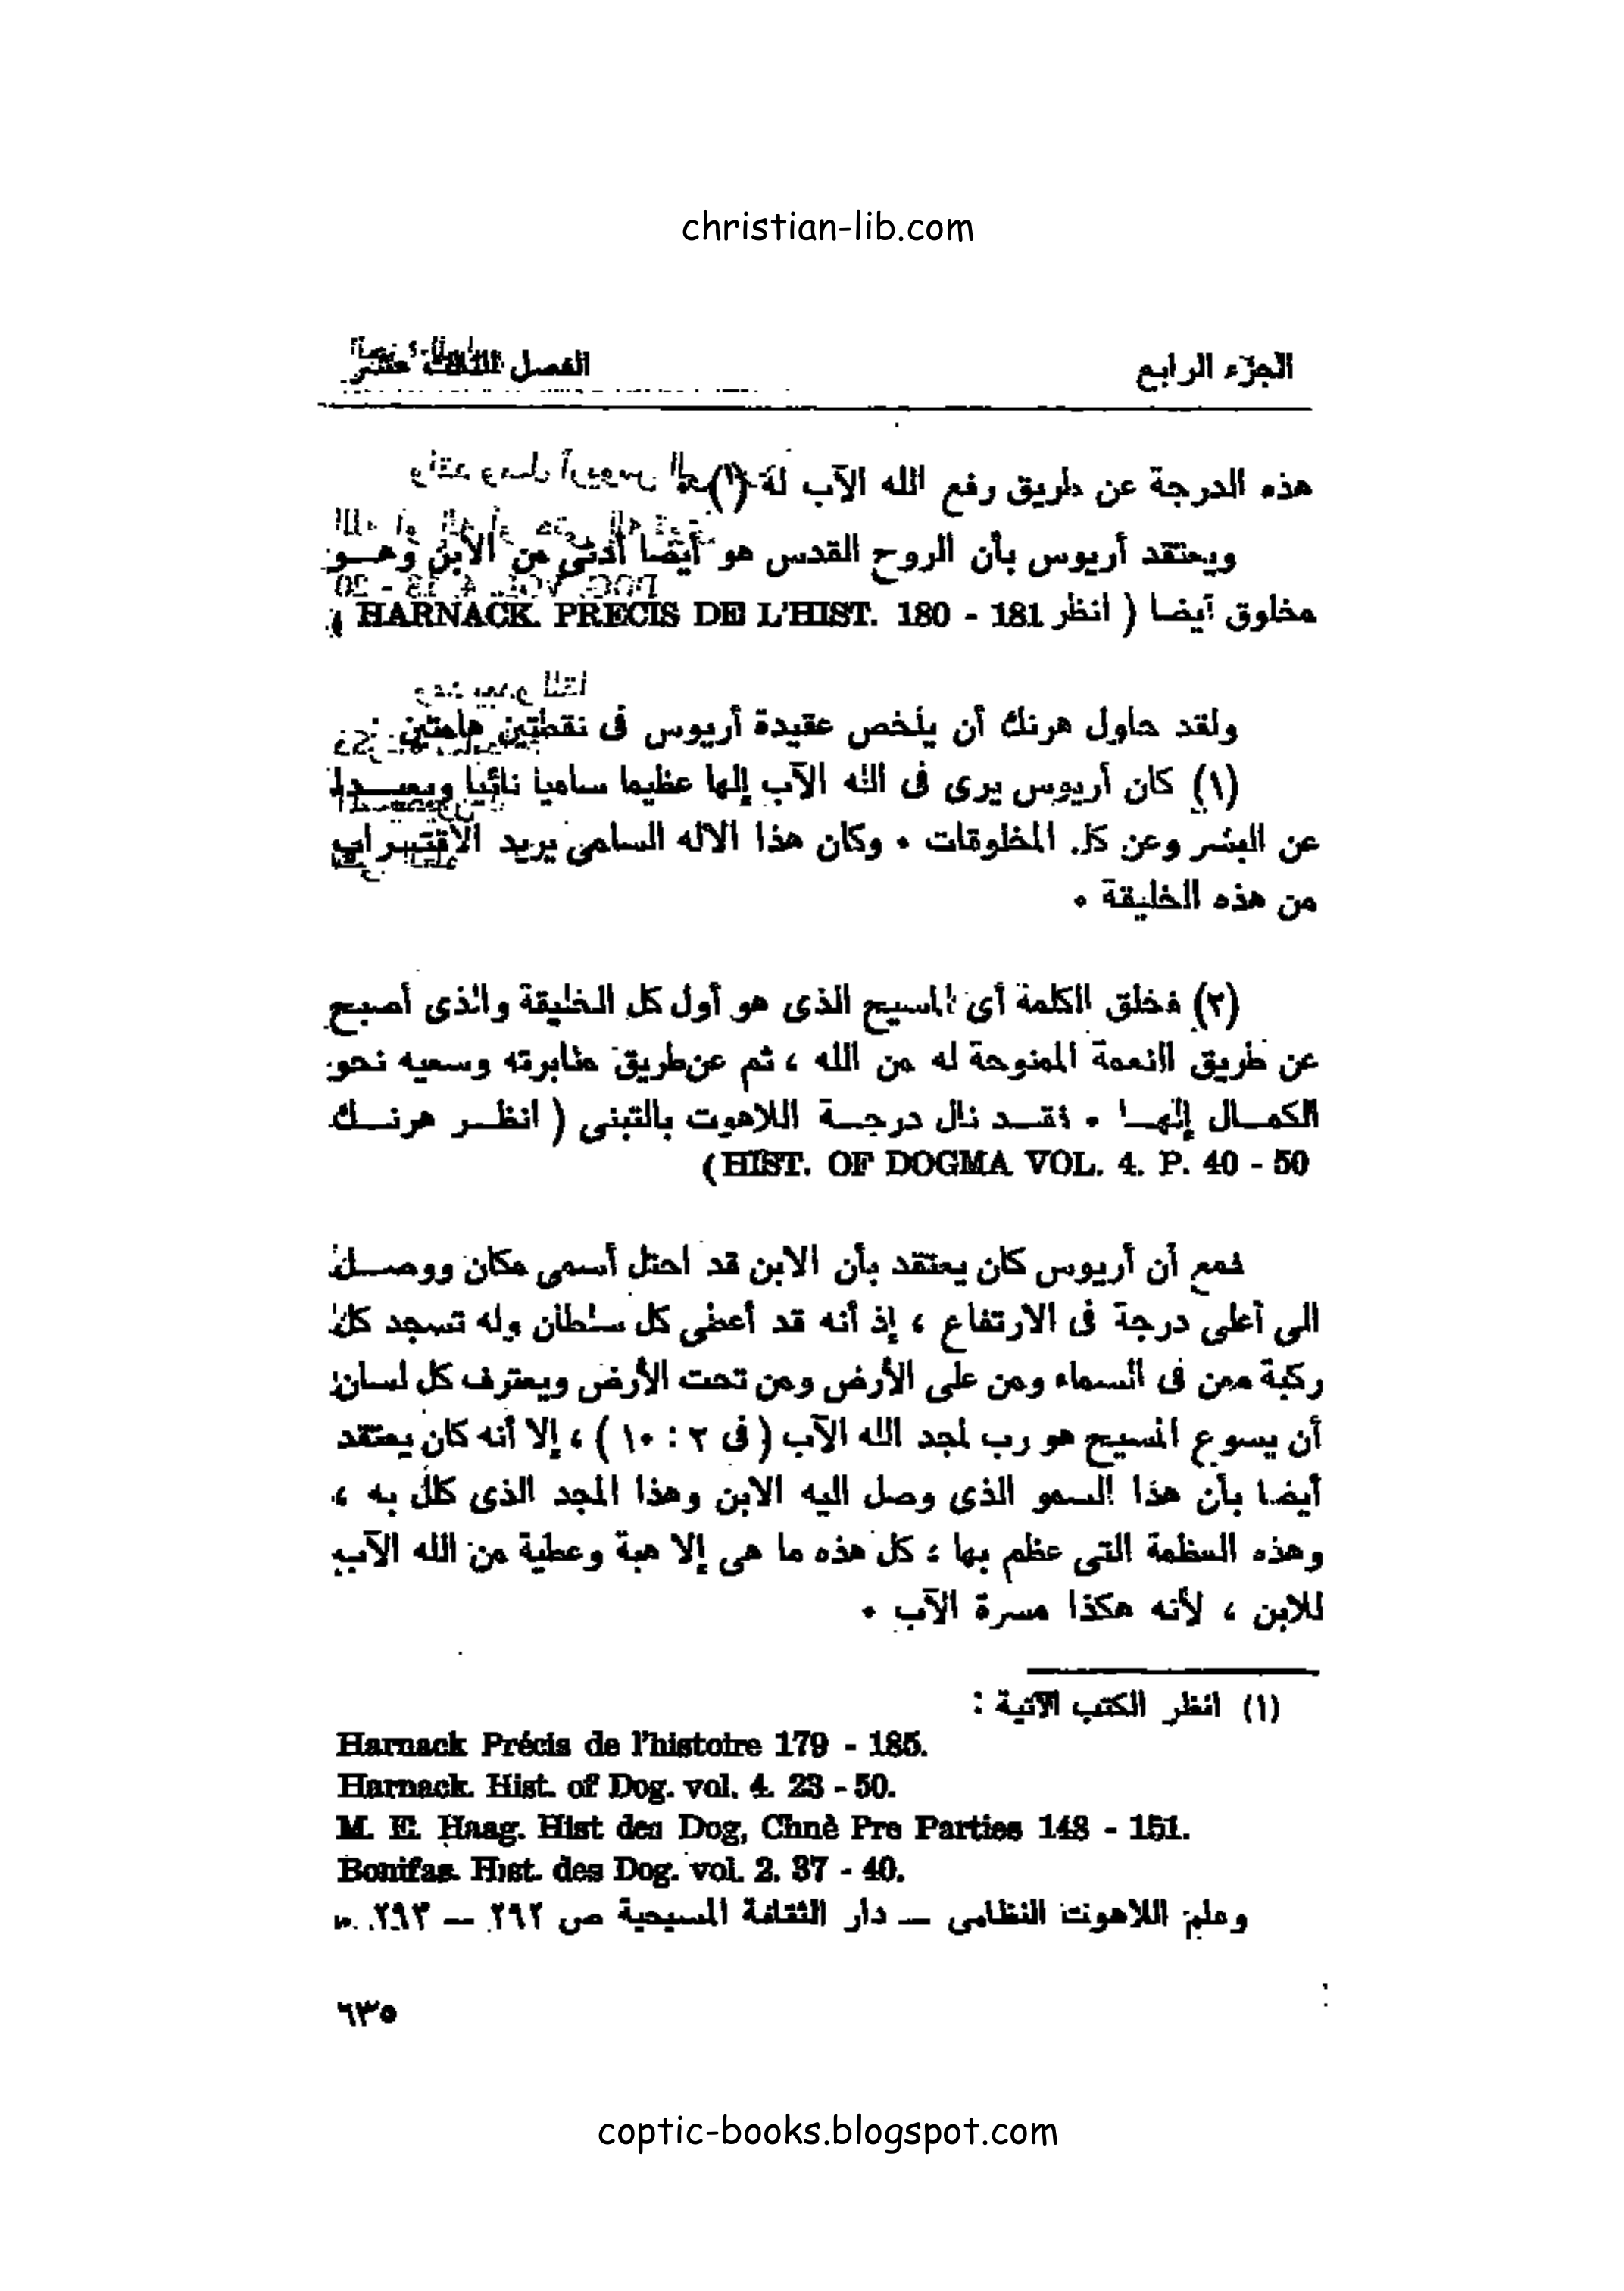 christian-lib.com
الجزء الرابع
الفصل الثالث عشر
هذه الدرجة عن طريق رفع الله الآب له (١)
ويعتقد أريوس بأن الروح القدس هو أيضا أدنى من الابن وهـو
مخلوق أيضا ( انظر HARNACK. PRECIS DE L'HIST. 180 - 181
ولقد حاول هرنك أن يلخص عقيدة أريوس فى نقطتين هامتين :
(١) كان أريوس يرى فى الله الآب إلها عظيما ساميا نائيا وبعيـدا
عن البشر وعن كل المخلوقات . وكان هذا الاله السامى يريد الاقتـراب
من هذه الخليقة .
(٢) فخلق الكلمة أى المسيح الذى هو أول كل الخليقة والذى أصبح
عن طريق النعمة الممنوحة له من الله ، ثم عن طريق مثابرته وسعيه نحو
الكمـال إلهـا . فقـد نال درجـة اللاهوت بالتبنى ( انظـر هرنـك
HIST. OF DOGMA VOL. 4. P. 40 - 50)
فمع أن أريوس كان يعتقد بأن الابن قد احتل أسمى مكان ووصـل
الى أعلى درجة فى الارتفاع ، إذ أنه قد أعطى كل سلطان وله تسجد كل
ركبة ممن فى السماء ومن على الأرض ومن تحت الأرض ويعترف كل لسان
أن يسوع المسيح هو رب لمجد الله الآب ( فى ٢ : ١٠ ) ، إلا أنه كان يعتقد
أيضا بأن هذا السمو الذى وصل اليه الابن وهذا المجد الذى كلل به ،
وهذه العظمة التى عظم بها ، كل هذه ما هى إلا هبة وعطية من الله الآب
للابن ، لأنه هكذا مسرة الآب .
(١) انظر الكتب الآتية :
Harnack Précis de l'histoire 179 - 185.
Harnack. Hist. of Dog. vol. 4. 23 - 50.
M. E. Haag. Hist des Dog, Chnè Pre Parties 148 - 151.
Bonifas. Hist. des Dog. vol. 2. 37 - 40.
وعلم اللاهوت النظامى — دار الثقافة المسيحية ص ٢٩٢ — ٢٩٣.
٦٣٥
coptic-books.blogspot.com